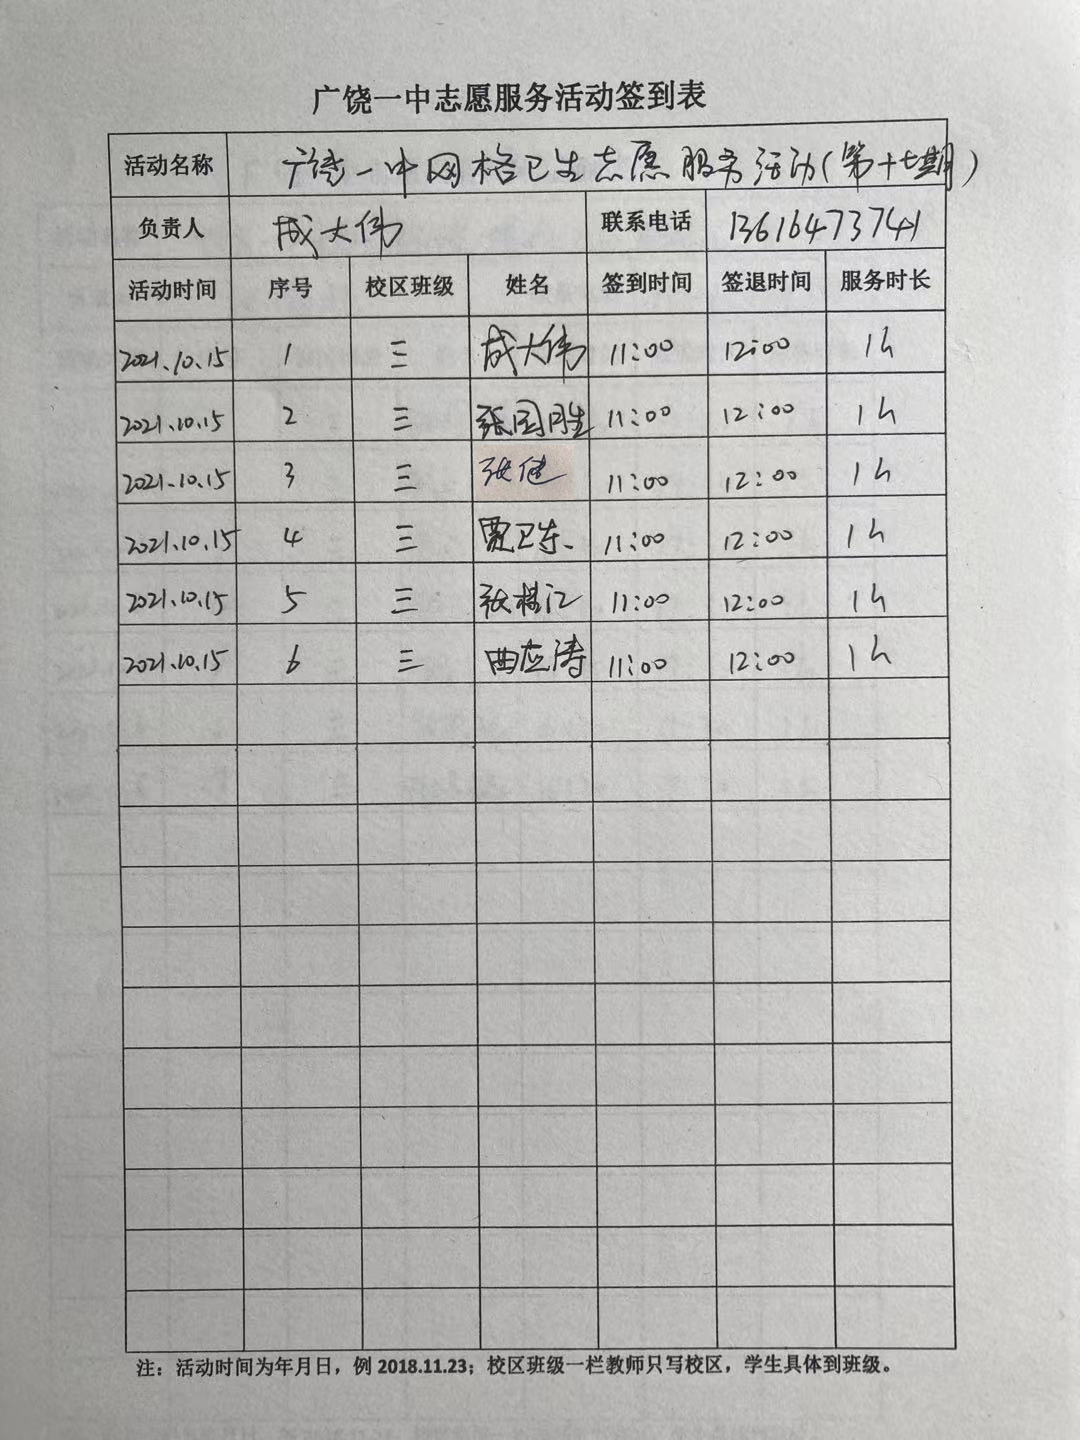 广饶一中志愿服务活动签到表
活动名称 广饶一中网格卫生志愿服务活动(第十七期)
负责人 成大伟 联系电话 13616473741
活动时间 序号 校区班级 姓名 签到时间 签退时间 服务时长
2021.10.15 1 三 成大伟 11:00 12:00 1h
2021.10.15 2 三 张国胜 11:00 12:00 1h
2021.10.15 3 三 张健 11:00 12:00 1h
2021.10.15 4 三 贾卫东 11:00 12:00 1h
2021.10.15 5 三 张 江 11:00 12:00 1h
2021.10.15 6 三 曲应涛 11:00 12:00 1h
注：活动时间为年月日，例 2018.11.23；校区班级一栏教师只写校区，学生具体到班级。